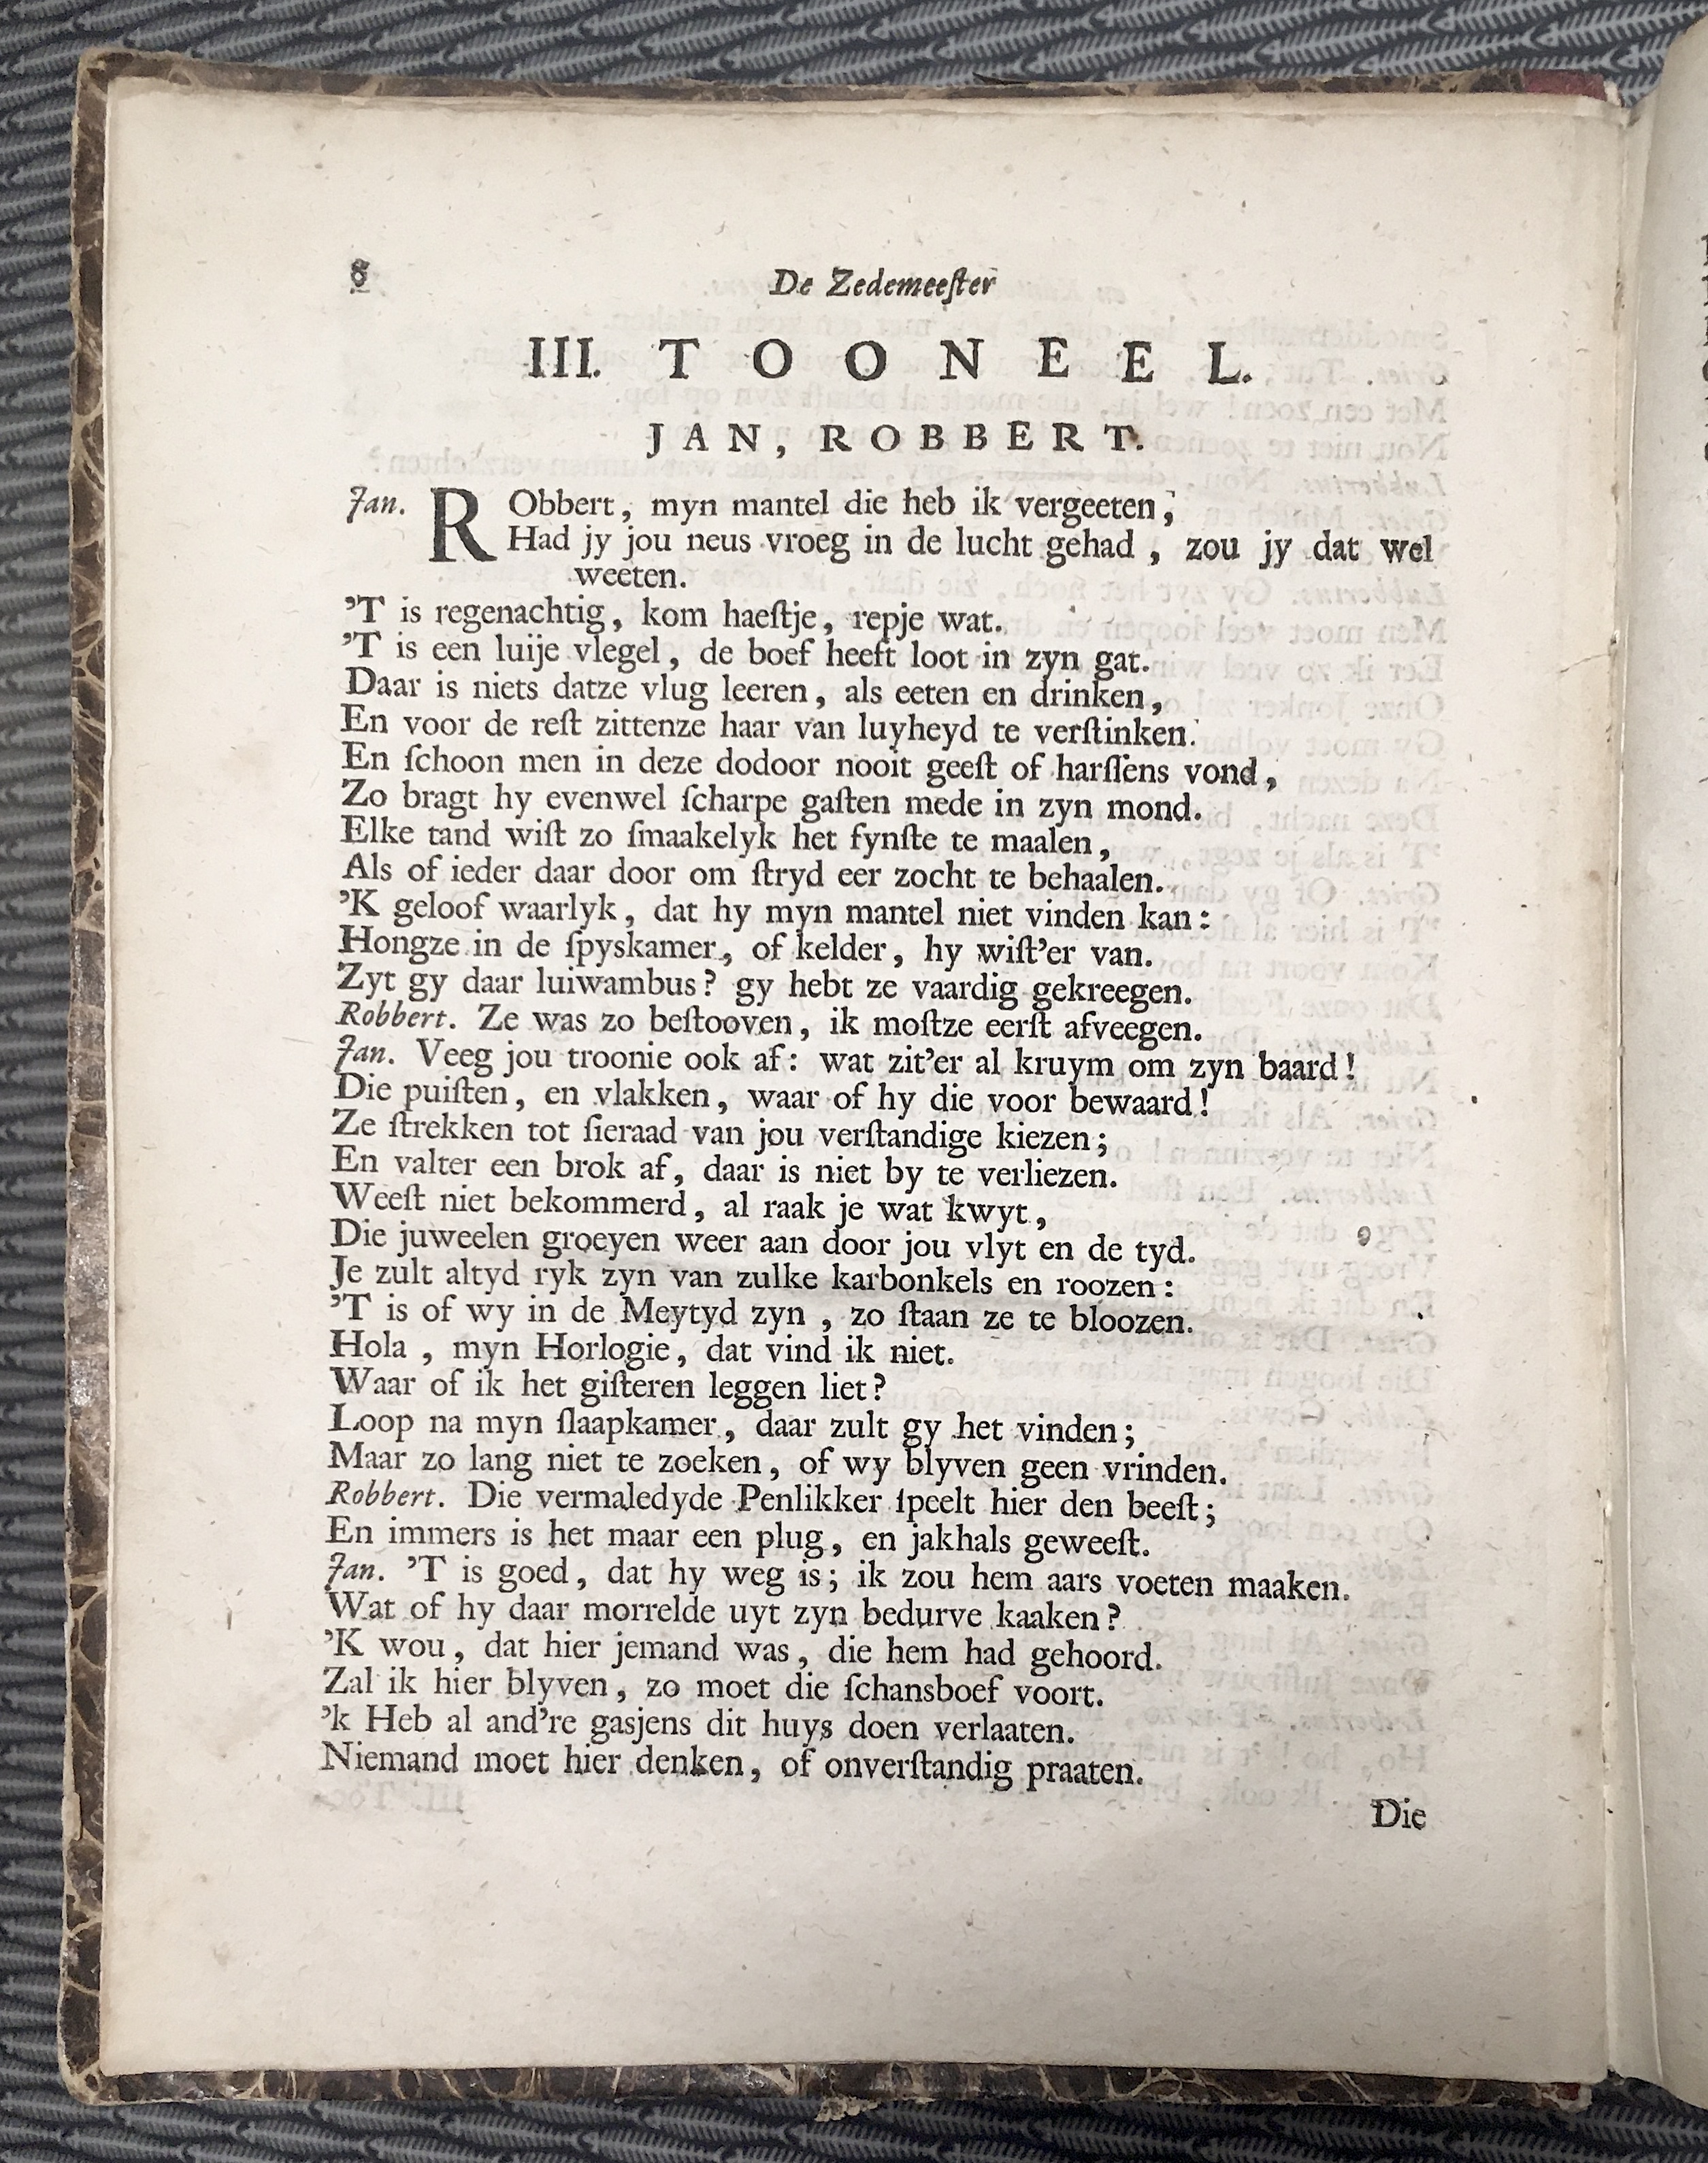 8
De Zedemeeſter
III. TOONEEL.
JAN, ROBBERT.
Jan. RObbert, myn mantel die heb ik vergeeten;
Had jy jou neus vroeg in de lucht gehad, zou jy dat wel
weeten.
'T is regenachtig, kom haeſtje, repje wat.
'T is een luije vlegel, de boef heeft loot in zyn gat.
Daar is niets datze vlug leeren, als eeten en drinken,
En voor de reſt zittenze haar van luyheyd te verſtinken.
En ſchoon men in deze dodoor nooit geeſt of harſſens vond,
Zo bragt hy evenwel ſcharpe gaſten mede in zyn mond.
Elke tand wiſt zo ſmaakelyk het fynſte te maalen,
Als of ieder daar door om ſtryd eer zocht te behaalen.
'K geloof waarlyk, dat hy myn mantel niet vinden kan:
Hongze in de ſpyskamer, of kelder, hy wiſt'er van.
Zyt gy daar luiwambus? gy hebt ze vaardig gekreegen.
Robbert. Ze was zo beſtooven, ik moſtze eerſt afveegen.
Jan. Veeg jou troonie ook af: wat zit'er al kruym om zyn baard!
Die puiſten, en vlakken, waar of hy die voor bewaard!
Ze ſtrekken tot ſieraad van jou verſtandige kiezen;
En valter een brok af, daar is niet by te verliezen.
Weeſt niet bekommerd, al raak je wat kwyt,
Die juweelen groeyen weer aan door jou vlyt en de tyd.
Je zult altyd ryk zyn van zulke karbonkels en roozen:
'T is of wy in de Meytyd zyn, zo ſtaan ze te bloozen.
Hola, myn Horlogie, dat vind ik niet.
Waar of ik het giſteren leggen liet?
Loop na myn ſlaapkamer, daar zult gy het vinden;
Maar zo lang niet te zoeken, of wy blyven geen vrinden.
Robbert. Die vermaledyde Penlikker ſpeelt hier den beeſt;
En immers is het maar een plug, en jakhals geweeſt.
Jan. 'T is goed, dat hy weg is; ik zou hem aars voeten maaken.
Wat of hy daar morrelde uyt zyn bedurve kaaken?
'K wou, dat hier jemand was, die hem had gehoord.
Zal ik hier blyven, zo moet die ſchansboef voort.
'k Heb al and're gasjens dit huys doen verlaaten.
Niemand moet hier denken, of onverſtandig praaten.
Die